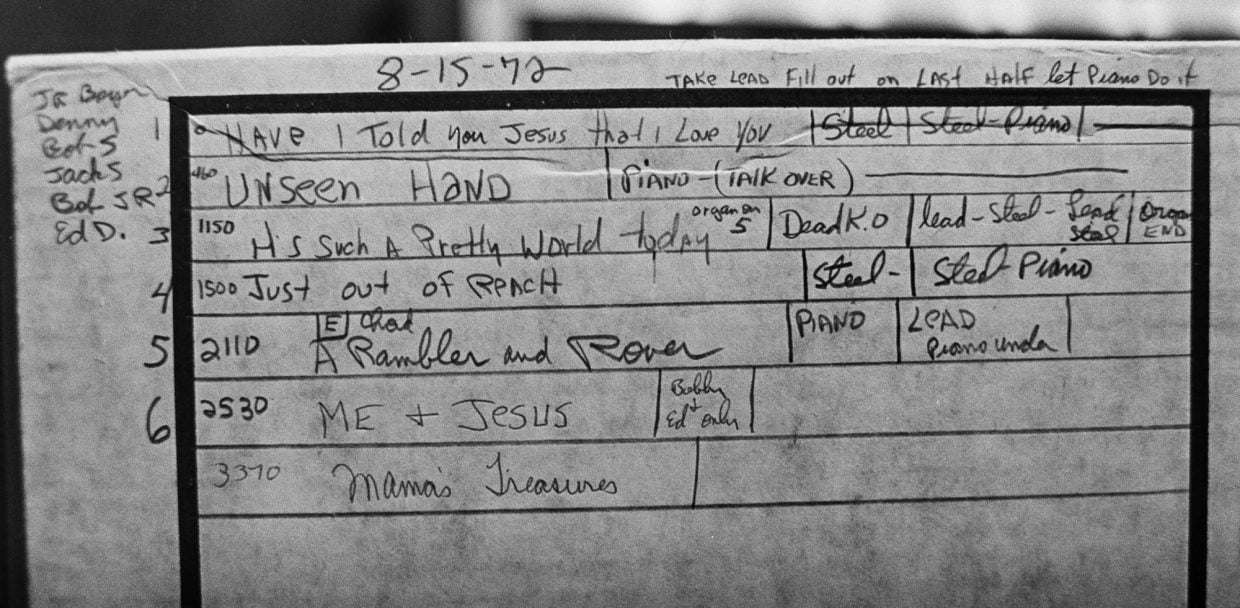 8-15-72
TAKE LEAD Fill out on LAST HALF let Piano Do it
JR
Denny
Bob S
Jack S
Bob JR
Ed D.
1 0 HAVE I Told you Jesus that I Love You Steel Steel-Piano
2 460 UNSeen HAND PiANO-(TALK OVER)
3 1150 H's Such A Pretty World today organ on 5 Dead K.O lead-Steel-Lead Steel Organ END
4 1500 Just out of REACH Steel- Steel-Piano
5 2110 E Chord A Rambler and Rover PIANO LEAD Piano unda
6 2530 ME + Jesus Bobby + Ed only
3370 Mama's Treasures